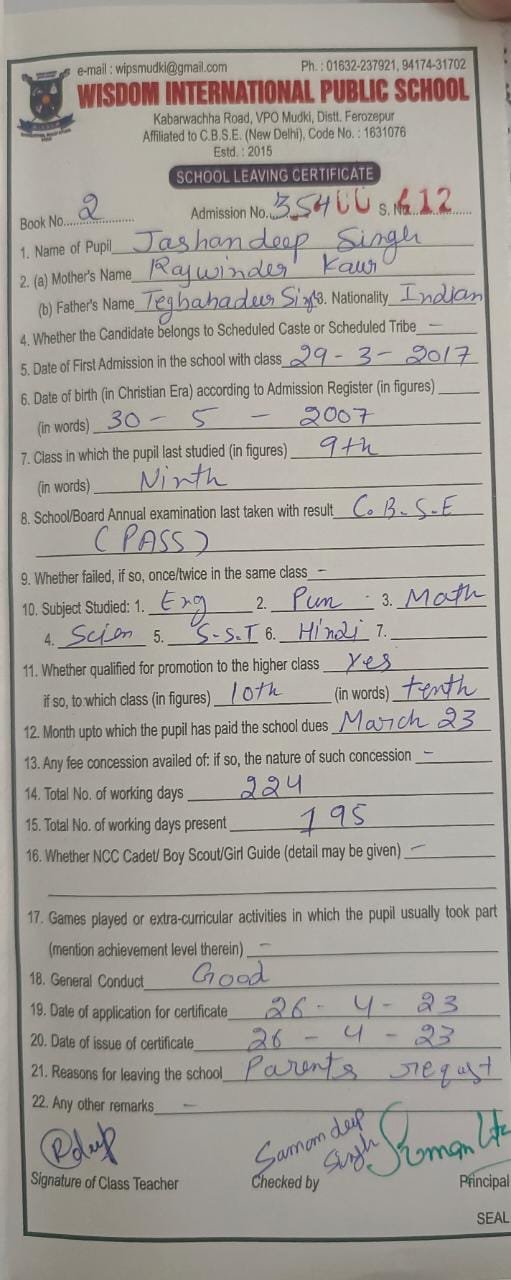 e-mail : wipsmudki@gmail.com Ph. : 01632-237921, 94174-31702
WISDOM INTERNATIONAL PUBLIC SCHOOL
Kabarwachha Road, VPO Mudki, Distt. Ferozepur
Affiliated to C.B.S.E. (New Delhi), Code No. : 1631076
Estd. : 2015
SCHOOL LEAVING CERTIFICATE
Book No. 2 Admission No. 354 S. No. 412
1. Name of Pupil Jashandeep Singh
2. (a) Mother's Name Rajwinder Kaur
(b) Father's Name Tegbahadur Singh 3. Nationality Indian
4. Whether the Candidate belongs to Scheduled Caste or Scheduled Tribe –
5. Date of First Admission in the school with class 29-3-2017
6. Date of birth (in Christian Era) according to Admission Register (in figures)
(in words) 30 - 5 - 2007
7. Class in which the pupil last studied (in figures) 9th
(in words) Ninth
8. School/Board Annual examination last taken with result C.B.S.E
(PASS)
9. Whether failed, if so, once/twice in the same class –
10. Subject Studied: 1. Eng 2. Pun 3. Math
4. Scien 5. S-S.T 6. Hindi 7.
11. Whether qualified for promotion to the higher class Yes
if so, to which class (in figures) 10th (in words) tenth
12. Month upto which the pupil has paid the school dues March 23
13. Any fee concession availed of: if so, the nature of such concession –
14. Total No. of working days 224
15. Total No. of working days present 195
16. Whether NCC Cadet/ Boy Scout/Girl Guide (detail may be given) –
17. Games played or extra-curricular activities in which the pupil usually took part
(mention achievement level therein) –
18. General Conduct Good
19. Date of application for certificate 26-4-23
20. Date of issue of certificate 26-4-23
21. Reasons for leaving the school Parents reqest
22. Any other remarks –
Samandeep
Singh
Signature of Class Teacher Checked by Principal
SEAL